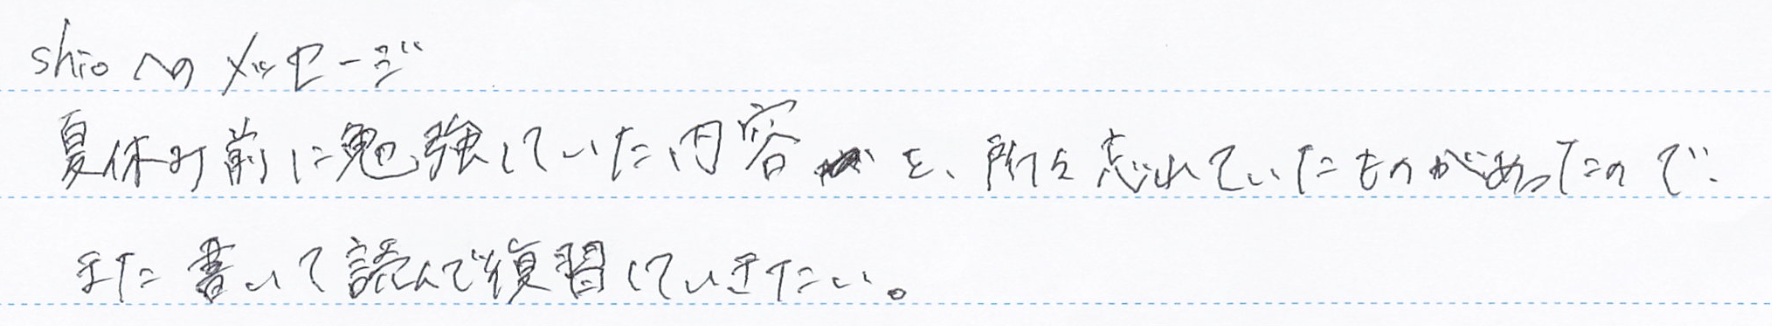 shioへのメッセージ
夏休み前に勉強していた内容を、所々忘れていたものがあったので、
また書いて読んで復習していきたい。